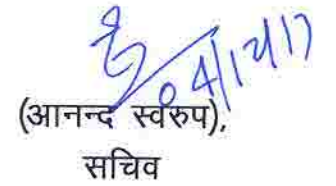 04/12/17
(आनन्द स्वरुप),
सचिव